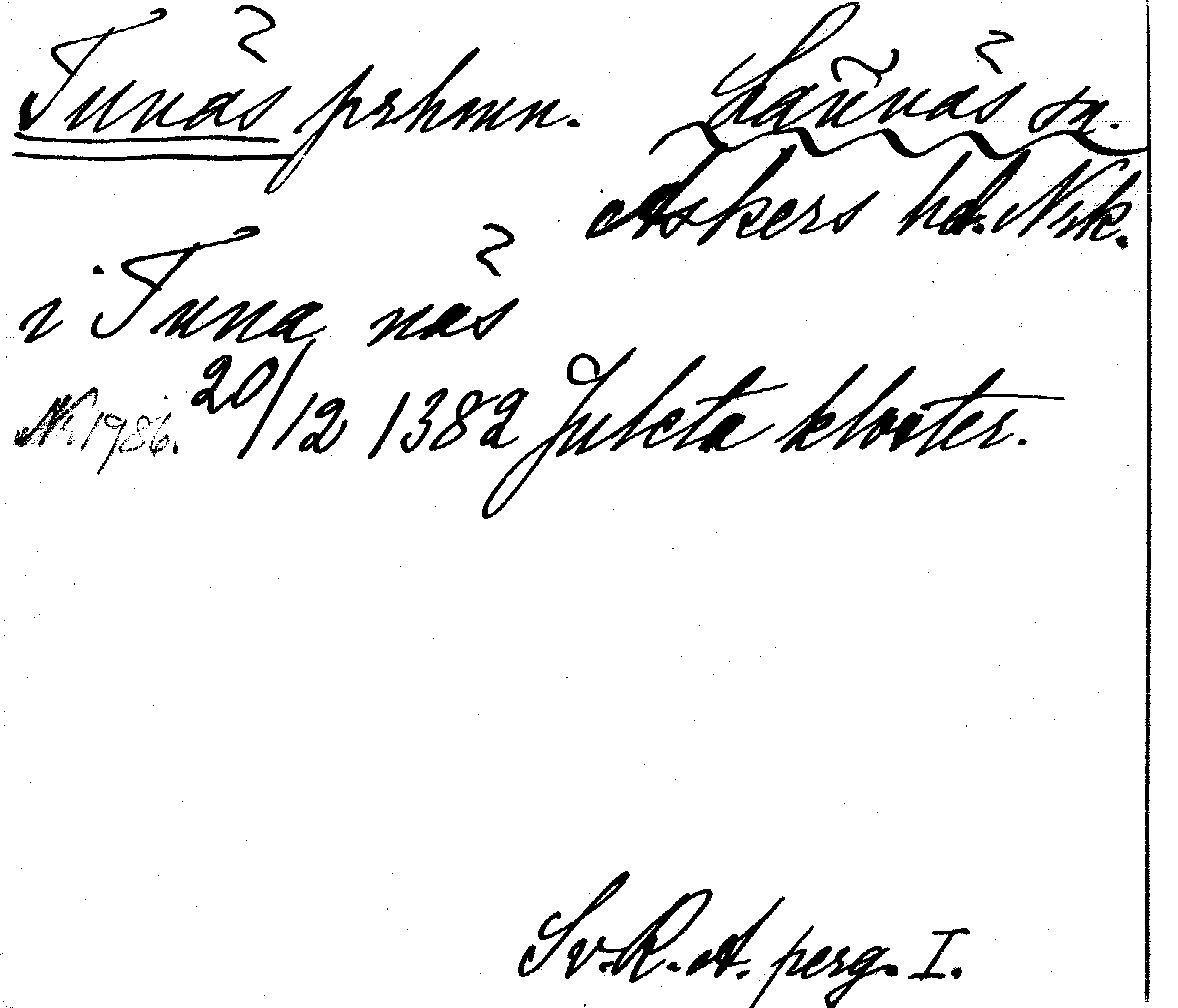 Tunäs prhmn. Lännäs sn.
Askers hd. Nrk.
i Tuna näs
Nr 1986. 20/12 1382 Juleta kloster.
Sv. R. A. perg. I.